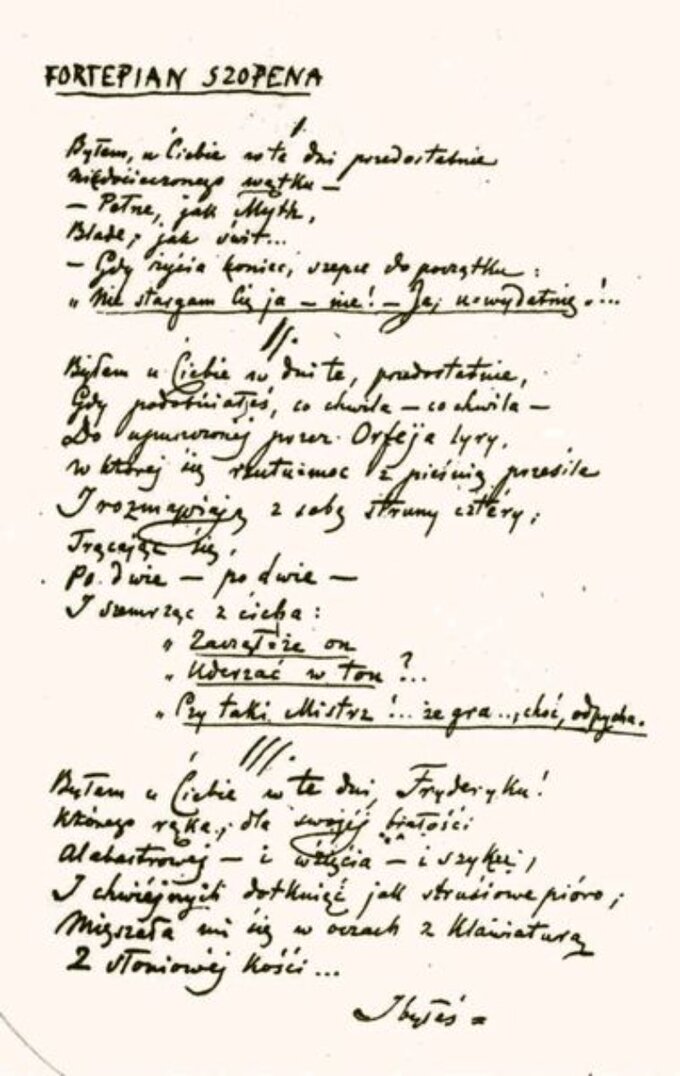 FORTEPIAN SZOPENA
I.
Byłem u Ciebie w te dni przedostatnie
Niedocieczonego wątku —
— Pełne, jak Myth,
Blade, jak świt...
— Gdy życia koniec szepce do początku:
„Nie stargam Cię ja — nie! — Ja, uwydatnię!...
II.
Byłem u Ciebie w dni te, przedostatnie,
Gdy podobniałeś, co chwila — co chwila —
Do upuszczonej przez Orfeja lyry,
W której się rzutu-moc z pieśnią przesila
I rozmawiają z sobą struny cztéry,
Trącając się,
Po dwie — po dwie —
I szemrząc z cicha:
„Zacząłże on
„Uderzać w ton?...
„Czy taki Mistrz!... że gra.., choć, odpycha.
III.
Byłem u Ciebie w te dni, Fryderyku!
Którego ręka, dla swojéj białości
Alabastrowej — i wzięcia — i szyku,
I chwiejnych dotknięć jak strusiowe pióro,
Mięszała mi się w oczach z klawiaturą
Z słoniowej kości...
I byłeś =